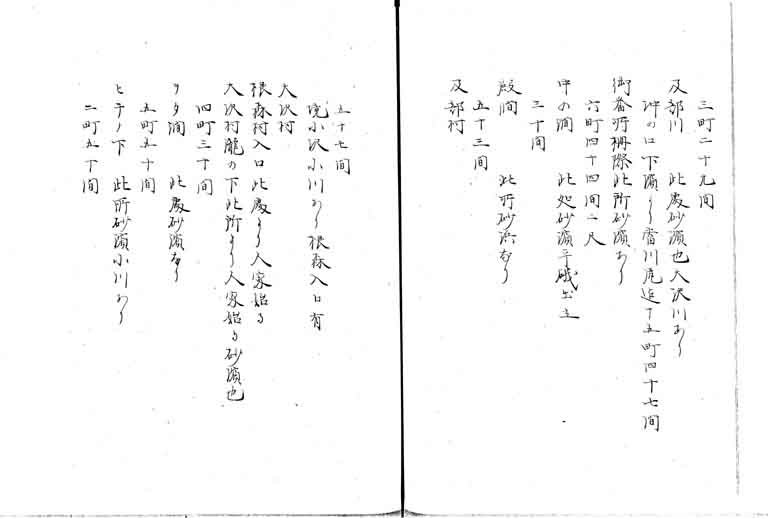 三町二十九間
及部川 此處砂濱也大沢川あり
沖の口下濱より當川尻迄丁五町四十七間
御番所柵際此所砂濱あり
六町四十四間二尺
中の澗 此処砂濱平磯出立
三十間
殿澗 此所砂浜なり
五十三間
及部村
五十七間
境小沢小川あり根森入口有
大沢村
根森村入口此處より人家始る
大沢村瀧の下此所より人家始る砂濱也
四町三十間
ヲタ澗 此處砂濱なり
五町五十間
ヒテノ下 此所砂濱小川あり
二町五十間